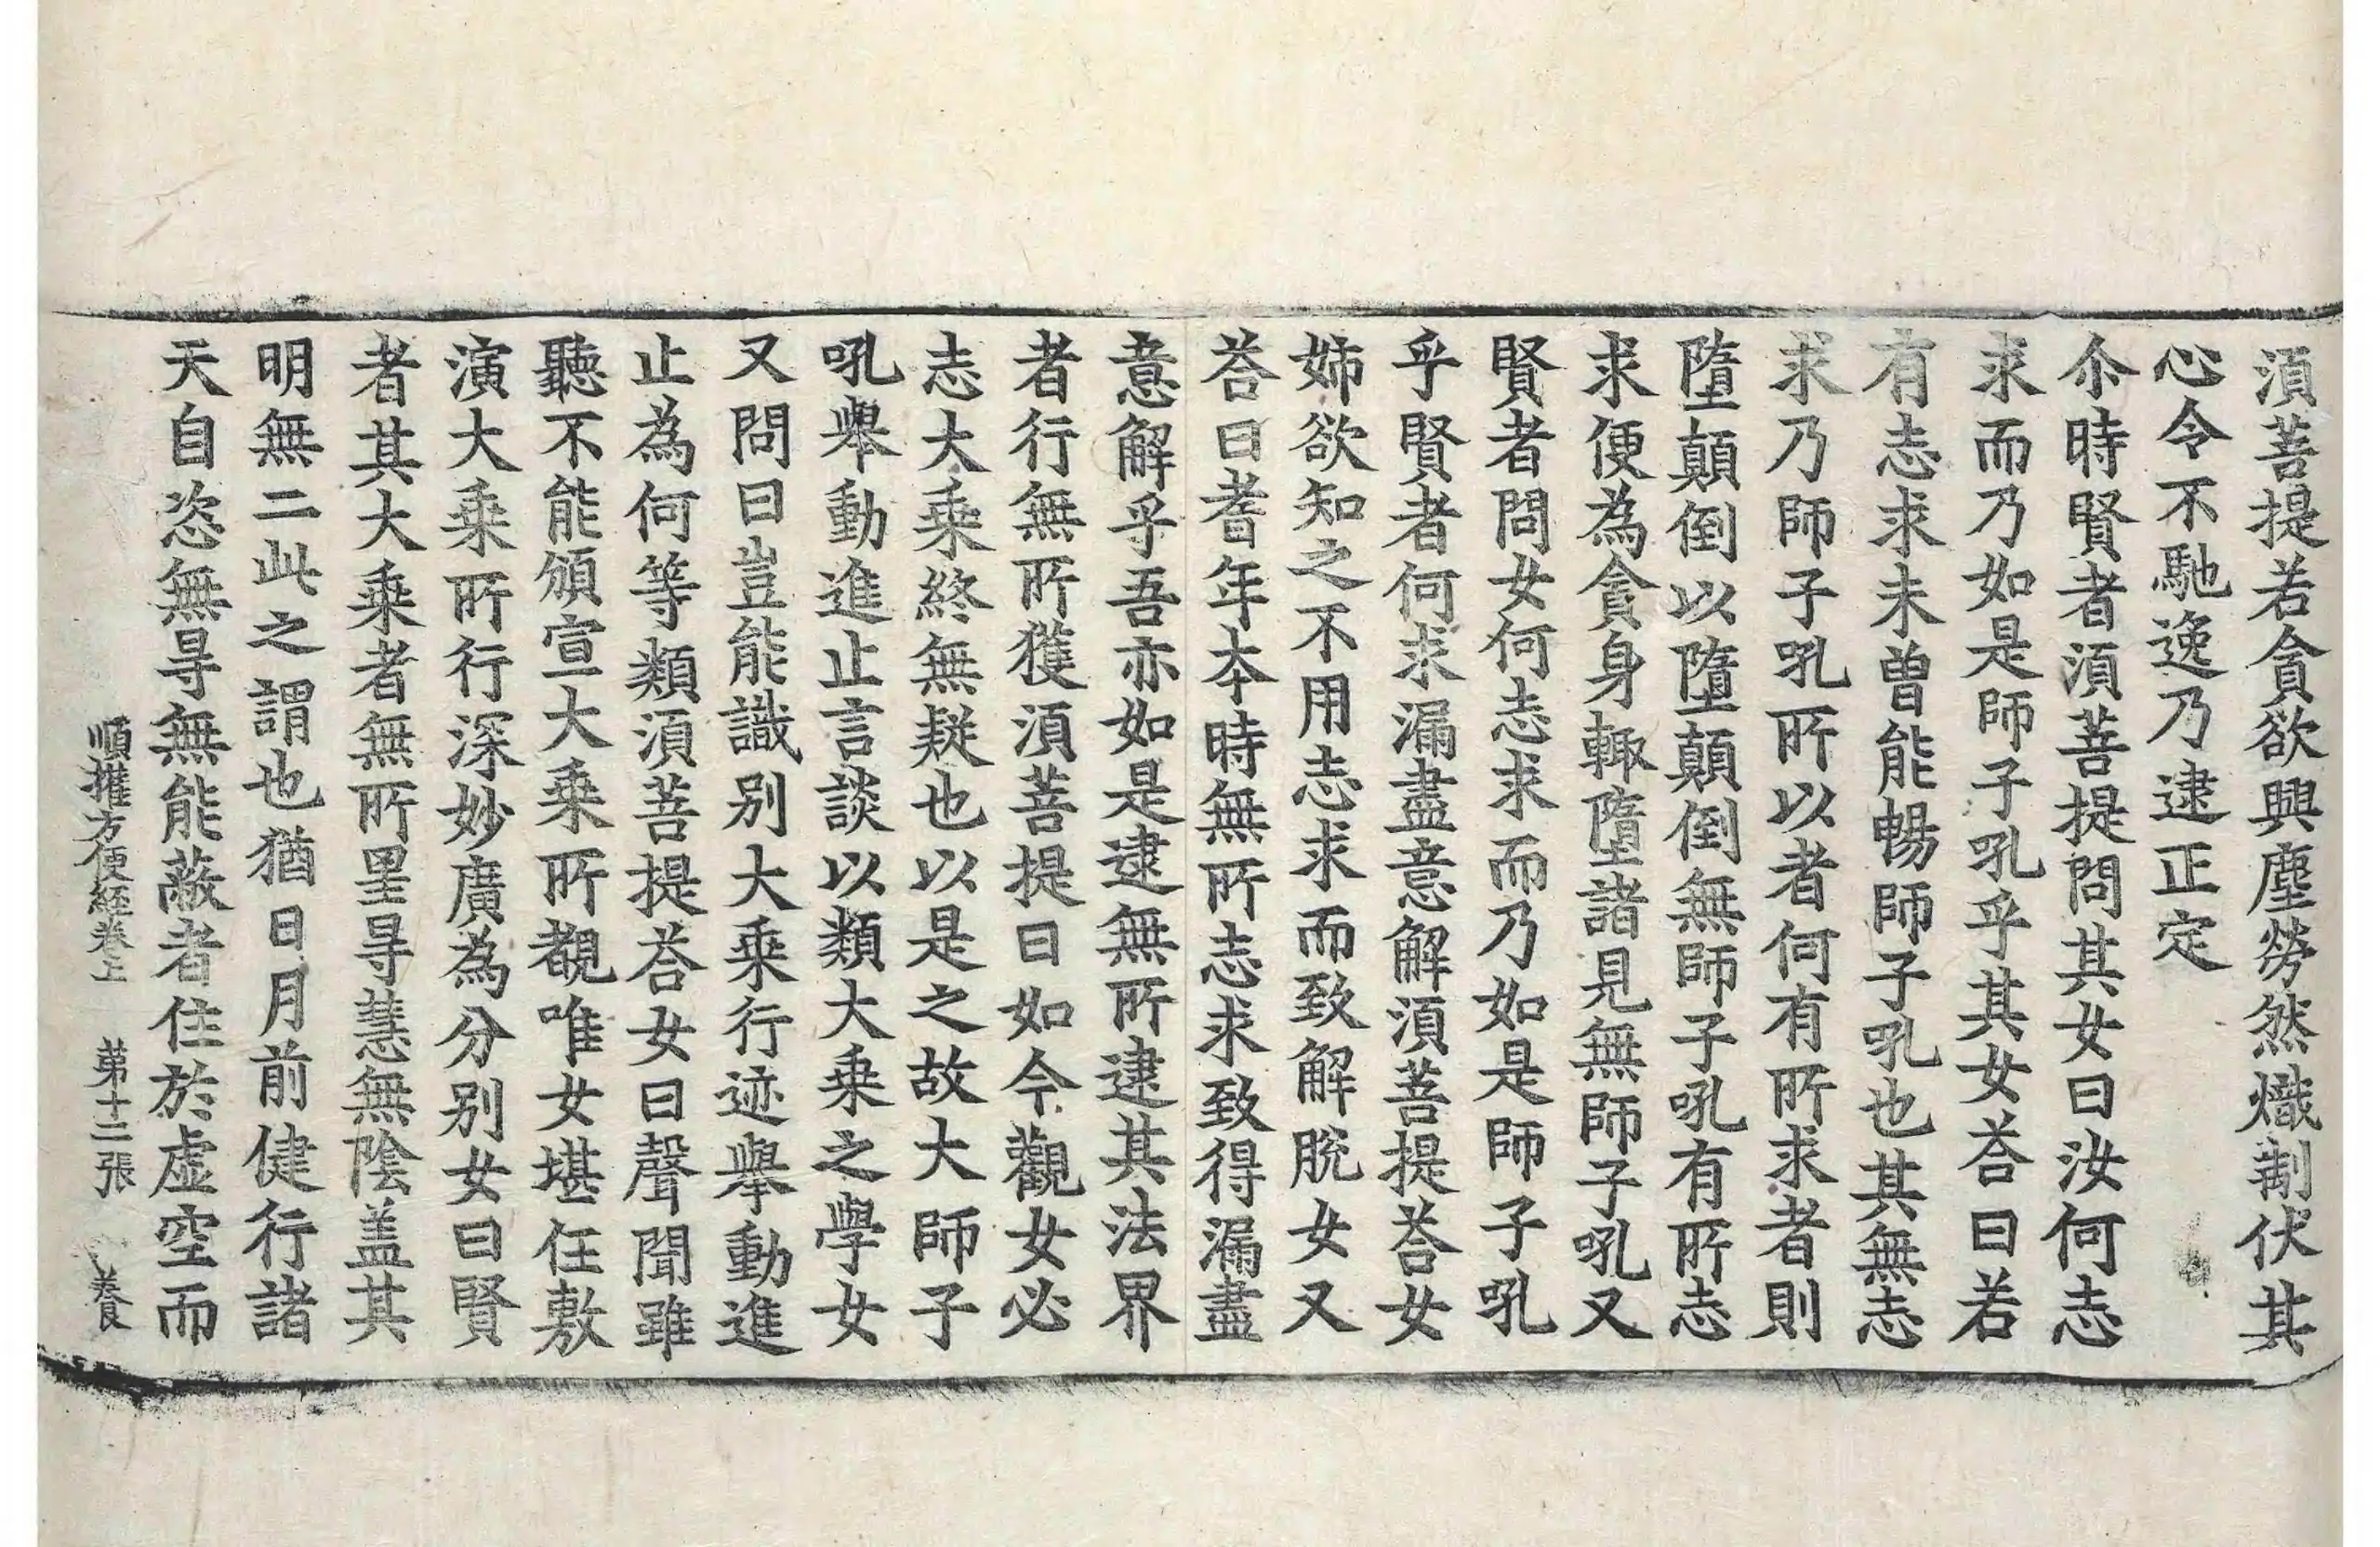 湏菩提若貪欲興塵勞然熾制伏其
心令不馳逸乃逮正定
尒時賢者湏菩提問其女曰汝何志
求而乃如是師子吼乎其女荅曰若
有志求未曾能暢師子吼也其無志
求乃師子吼所以者何有所求者則
墮顛倒以墮顛倒無師子吼有所志
求便為貪身輙墮諸見無師子吼又
賢者問女何志求而乃如是師子吼
乎賢者何求漏盡意解湏菩提荅女
姊欲知之不用志求而致解脫女又
荅曰耆年本時無所志求致得漏盡
意解乎吾亦如是逮無所逮其法界
者行無所獲湏菩提曰如今觀女必
志大乘終無疑也以是之故大師子
吼舉動進止言談以類大乘之學女
又問曰豈能識別大乘行迹舉動進
止為何等類湏菩提荅女曰聲聞雖
聽不能頒宣大乘所覩唯女堪任敷
演大乘所行深妙廣為分別女曰賢
者其大乘者無所罣㝵慧無陰盖其
明無二此之謂也猶日月前健行諸
天自恣無㝵無能蔽者住於虛空而
順推方便經卷上　第十二張　養